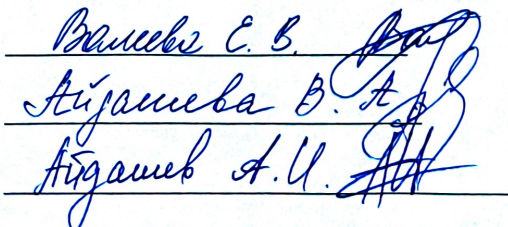 Валиева Е. В.
Айдашева В. А.
Айдашев А. И.